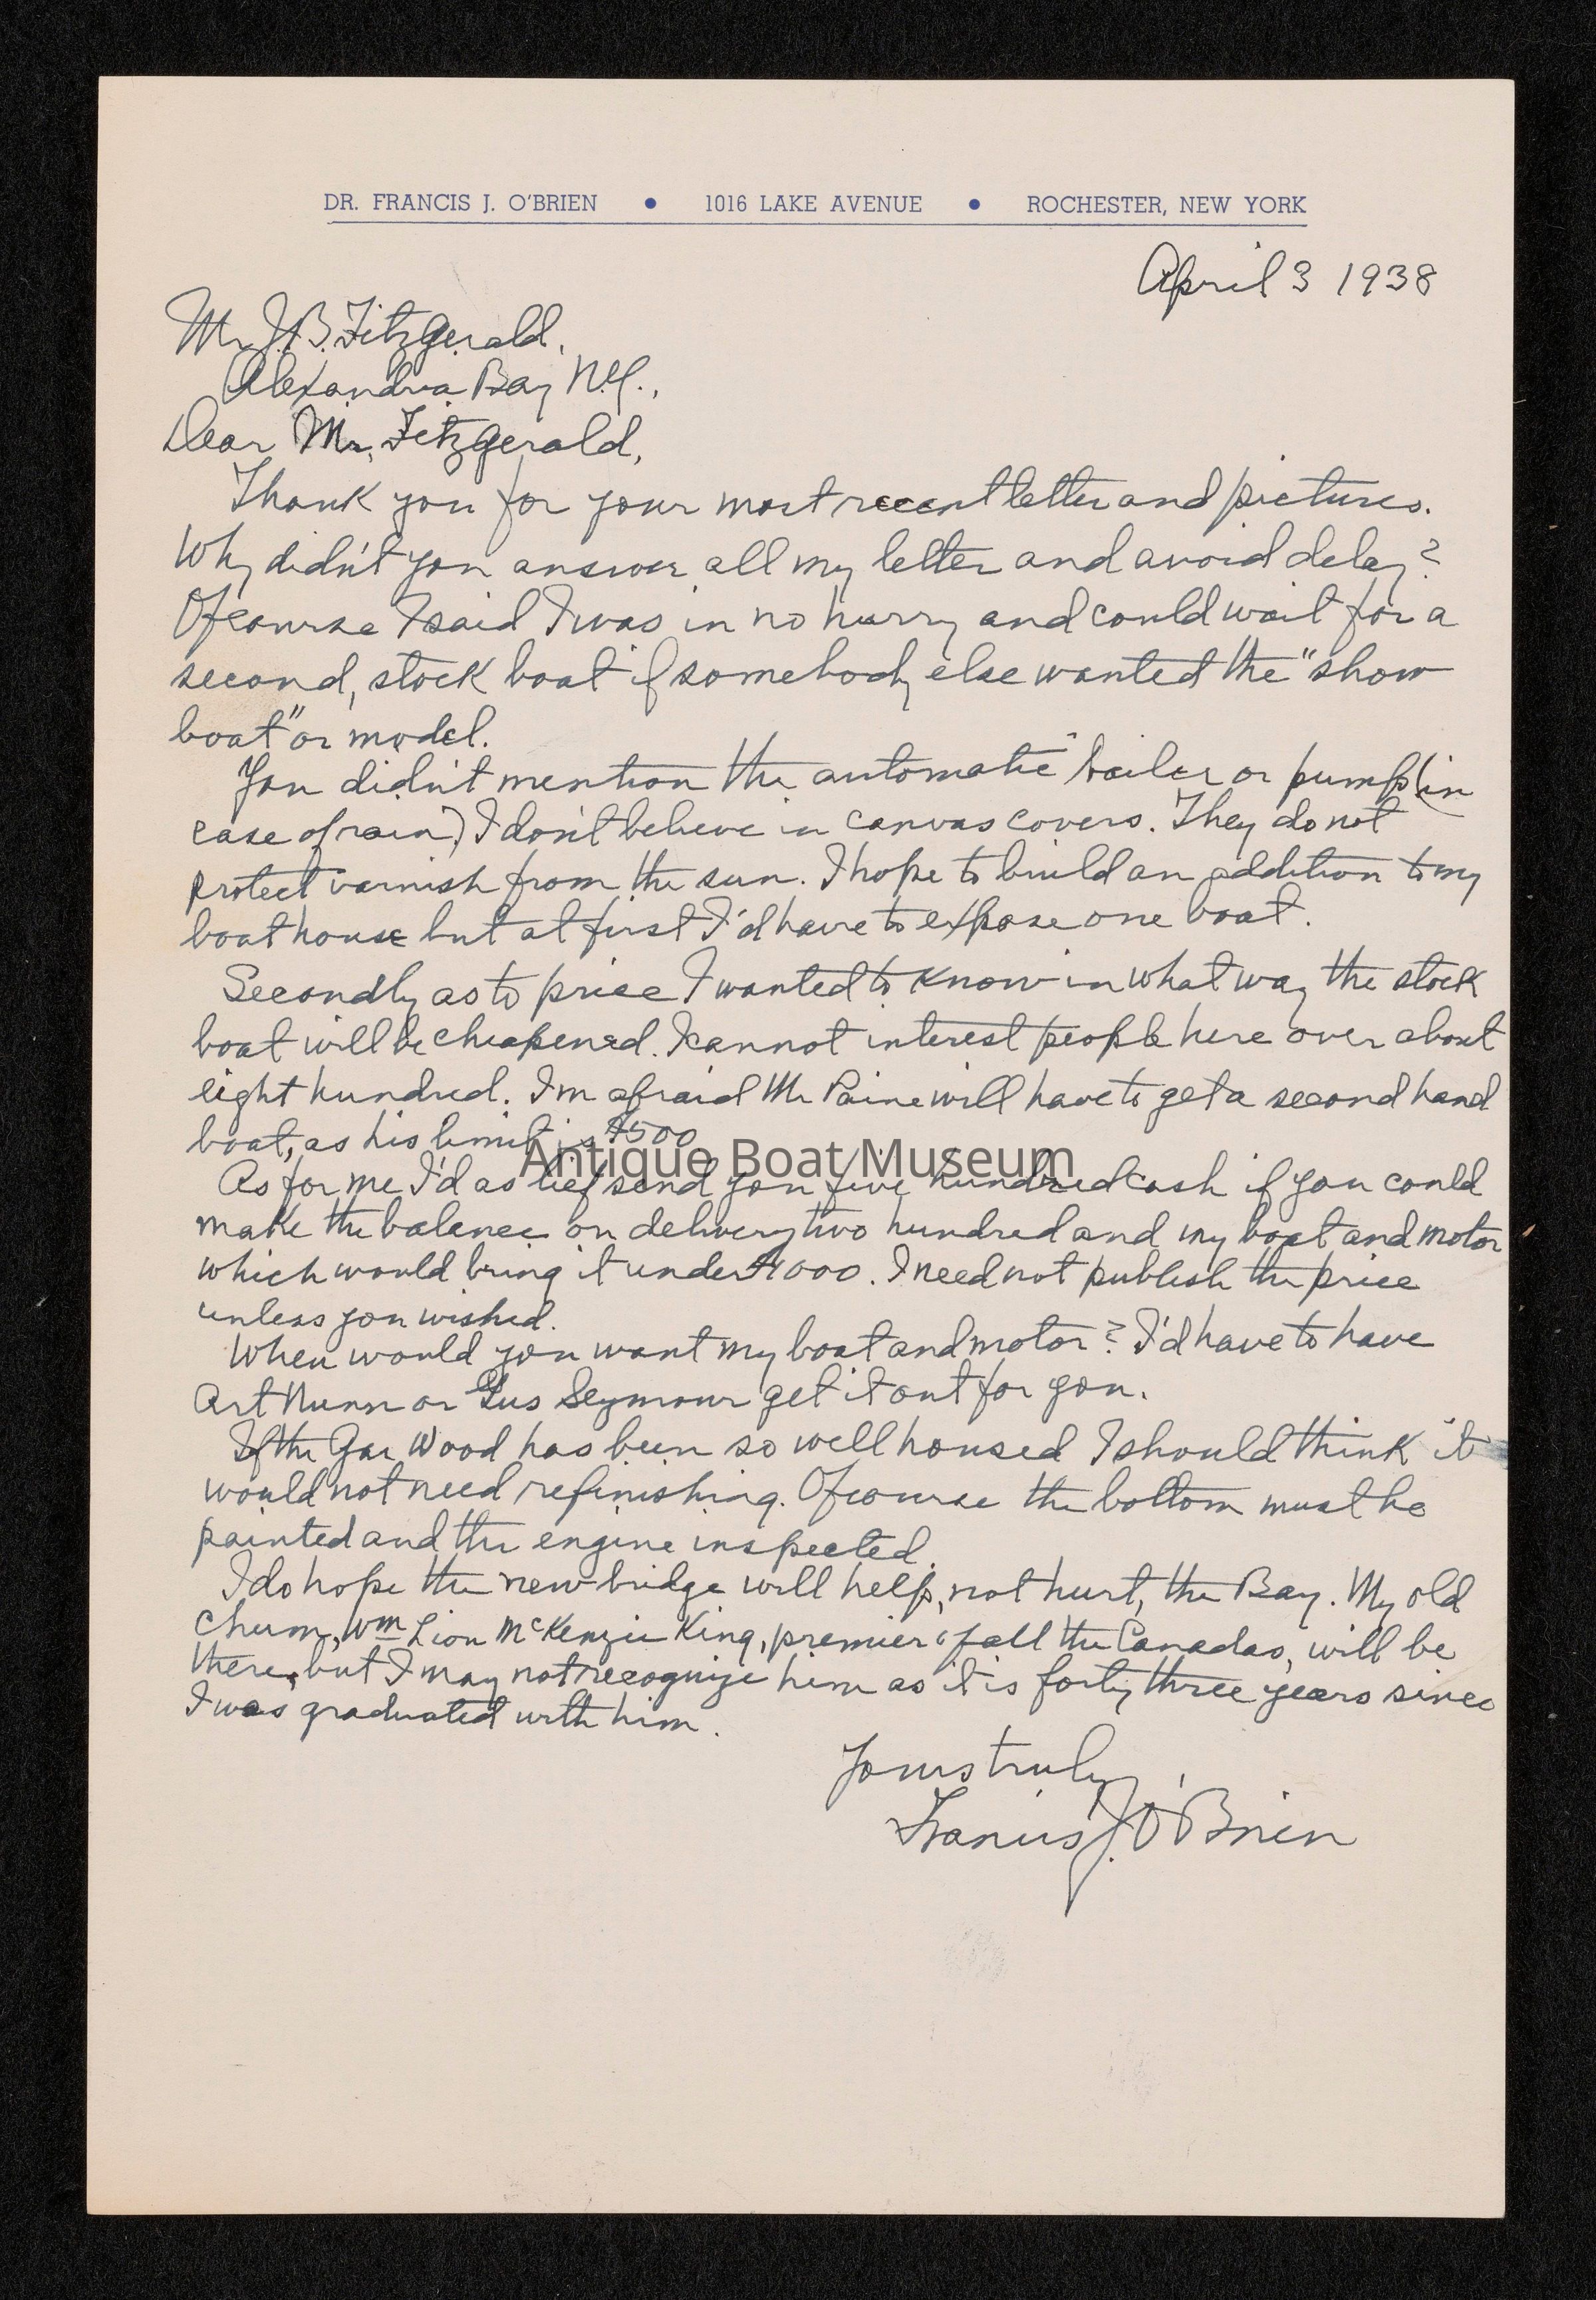 DR. FRANCIS J. O'BRIEN • 1016 LAKE AVENUE • ROCHESTER, NEW YORK
April 3 1938
Mr J.B. Fitzgerald,
Alexandria Bay N.Y.,
Dear Mr. Fitzgerald,
Thank you for your most recent letter and pictures.
Why didn't you answer all my letter and avoid delay?
Of course I said I was in no hurry and could wait for a
second, stock boat if somebody else wanted the "show
boat" or model.
You didn't mention the automatic bailer or pump (in
case of rain) I don't believe in canvas covers. They do not
protect varnish from the sun. I hope to build an addition to my
boathouse but at first I'd have to expose one boat.
Secondly as to price I wanted to know in what way the stock
boat will be cheapened. I cannot interest people here over about
eight hundred. I'm afraid Mr Paine will have to get a second hand
boat, as his limit is $500
As for me I'd as lief send you five hundred cash if you could
make the balance on delivery two hundred and my boat and motor
which would bring it under $1000. I need not publish the price
unless you wished.
When would you want my boat and motor? I'd have to have
Art Nunn or Gus Seymour get it out for you.
If the Gar Wood has been so well housed I should think it
would not need refinishing. Of course the bottom must be
painted and the engine inspected.
I do hope the new bridge will help, not hurt, the Bay. My old
chum, Wm Lion McKenzie King, premier of all the Canadas, will be
there, but I may not recognize him as it is forty three years since
I was graduated with him.
Yours truly,
Francis J. O'Brien
Antique Boat Museum